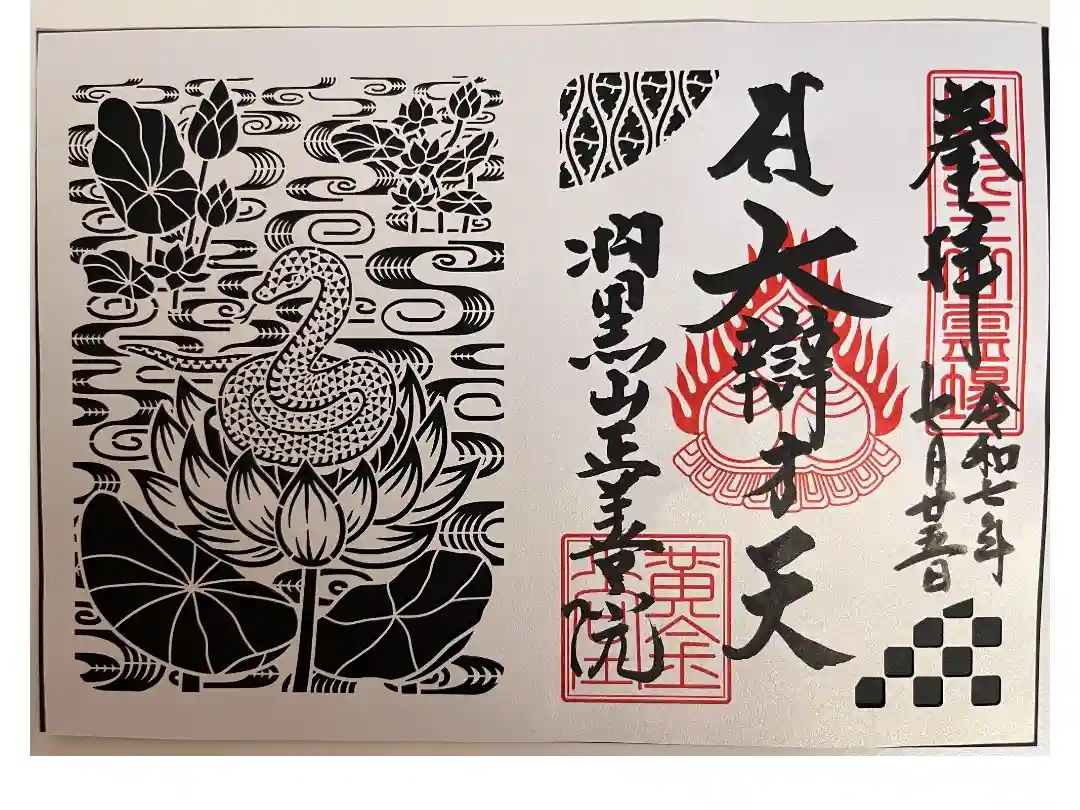 奉拝
令和七年
七月廿五日
大辯才天
羽黒山正善院
黄金堂
霊場